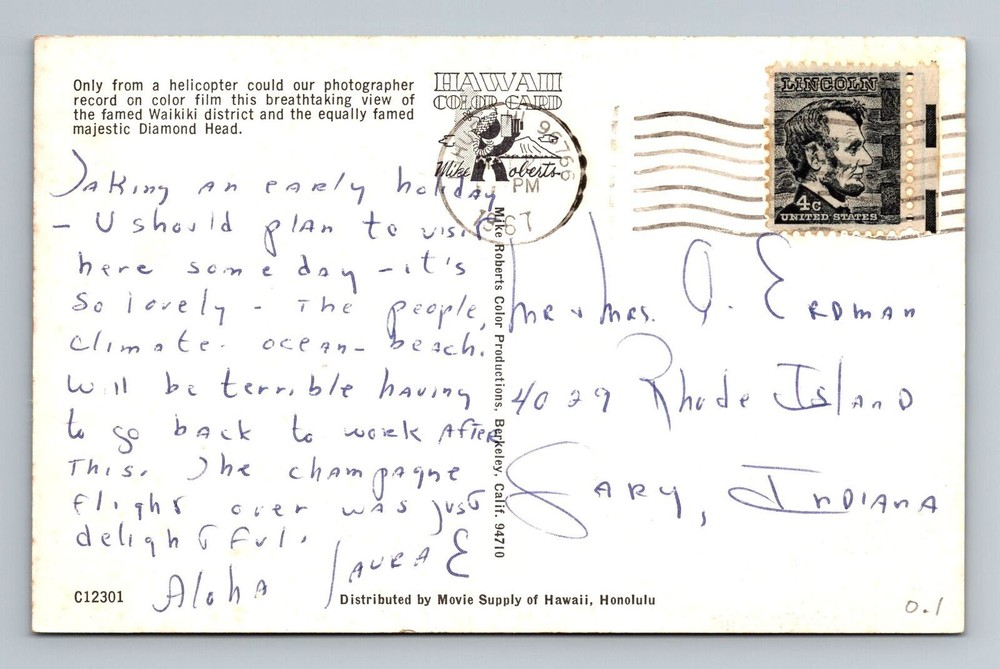 Only from a helicopter could our photographer
record on color film this breathtaking view of
the famed Waikiki district and the equally famed
majestic Diamond Head.
HAWAII
COLOR CARD
Mike Roberts
96766
PM
1967
LINCOLN
4c
UNITED STATES
Taking an early holiday
- U should plan to visit
here some day - it's
so lovely - The people,
climate. ocean - beach.
Will be terrible having
to go back to work after
this. The champagne
flight over was just
delightful.
Aloha Laura E
Mike Roberts Color Productions, Berkeley, Calif. 94710
Mr & Mrs. O. Erdman
4029 Rhode Island
Gary, Indiana
C12301
Distributed by Movie Supply of Hawaii, Honolulu
0.1